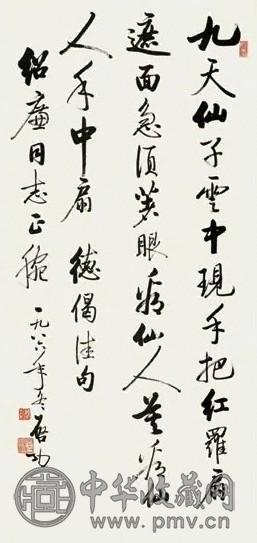 九天仙子云中現手把紅羅扇
遮面急須着眼看仙人莫看仙
人手中扇 德偈佳句
紹廉同志正腕
一九八六年冬啓功
中华收藏网
www.pmv.cn